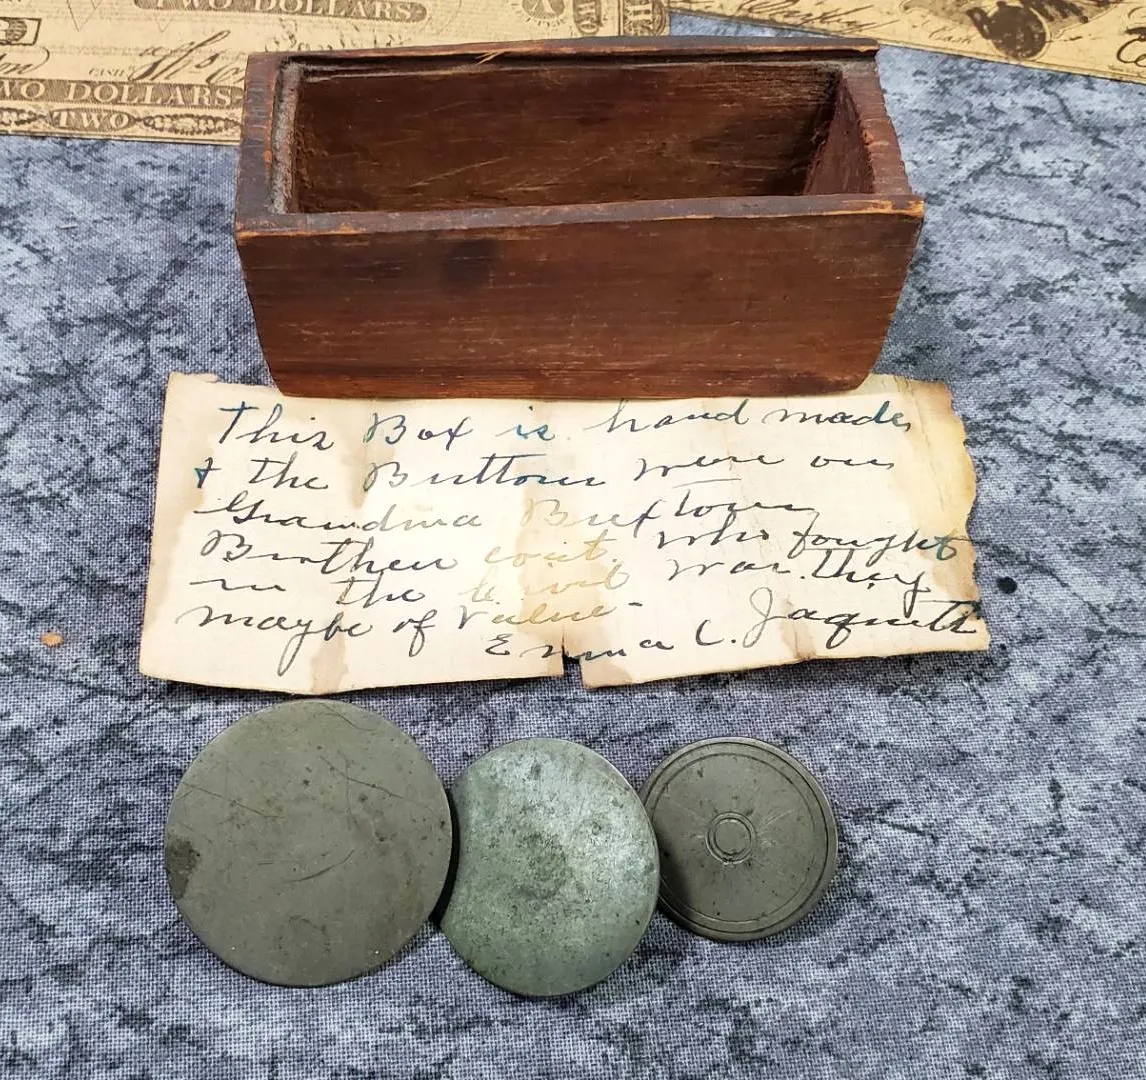 TWO DOLLARS
TWO DOLLARS
TWO
Cash
This Box is hand made
& the Buttons were our
Grandma Buxtons
Brother coat. who fought
in the Civil war. they
maybe of value-
Emma C. Jaquith